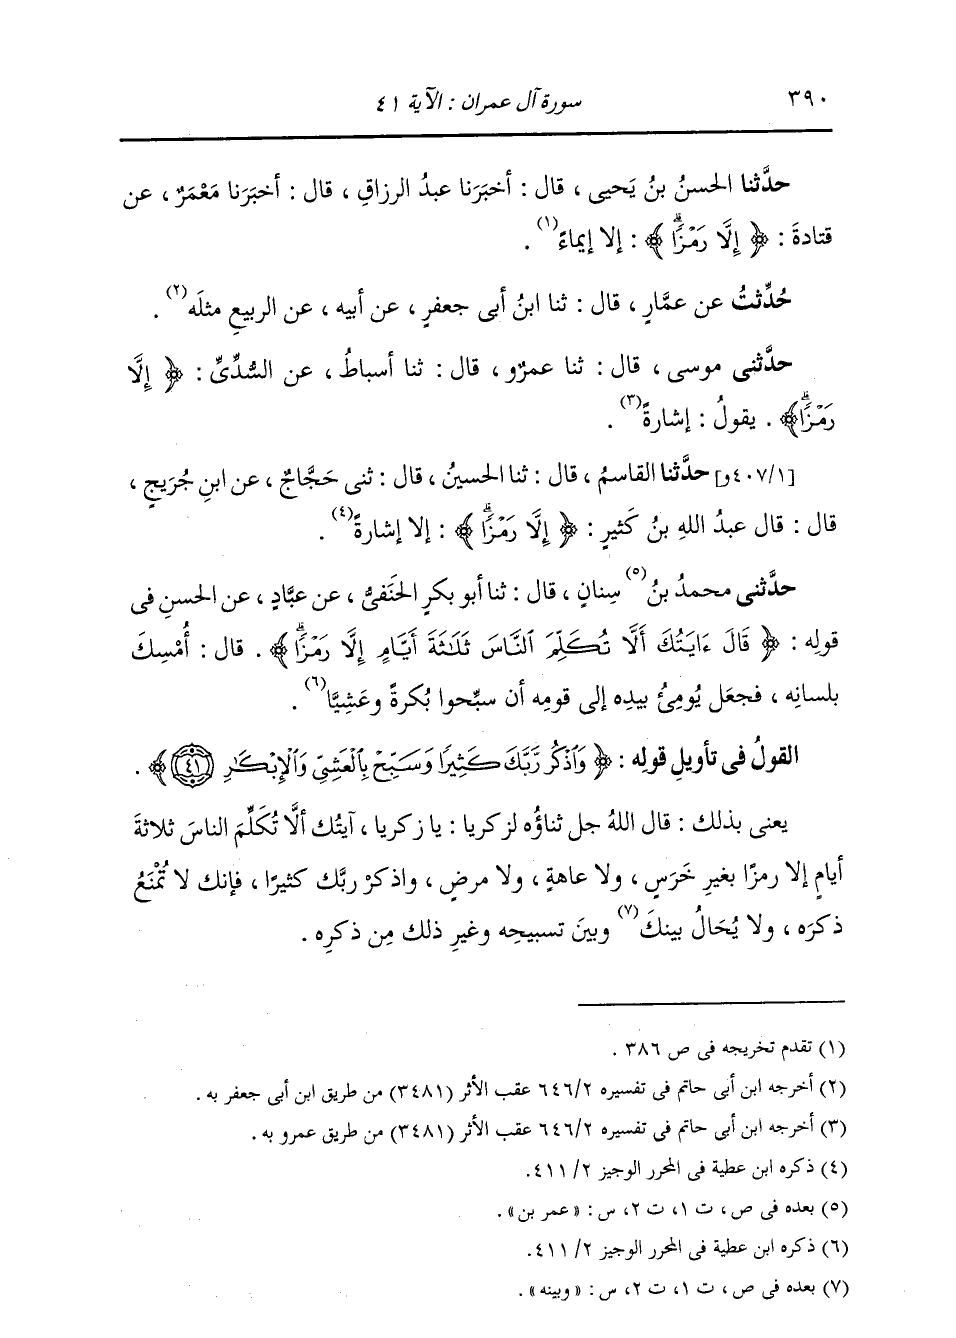 ٣٩٠
سورة آل عمران : الآية ٤١
حدَّثنا الحسنُ بنُ يَحيى ، قال : أخبَرَنا عبدُ الرزاقِ ، قال : أخبَرَنا مَعْمَرٌ ، عن
قتادةَ : ﴿ إِلَّا رَمْزًاۗ ﴾ : إلا إيماءً(١) .
حُدِّثتُ عن عمَّارٍ ، قال : ثنا ابنُ أبى جعفرٍ ، عن أبيه ، عن الربيعِ مثلَه(٢) .
حدَّثنى موسى ، قال : ثنا عمرٌو ، قال : ثنا أسباطُ ، عن السُّدِّىِّ : ﴿ إِلَّا
رَمْزًاۗ﴾ . يقولُ : إشارةً(٣) .
[٤٠٧/١و] حدَّثنا القاسمُ ، قال : ثنا الحسينُ ، قال : ثنى حَجَّاجٌ ، عن ابنِ جُريجٍ ،
قال : قال عبدُ اللهِ بنُ كثيرٍ : ﴿ إِلَّا رَمْزًاۗ ﴾ : إلا إشارةً(٤) .
حدَّثنى محمدُ بنُ(٥) سِنانٍ ، قال : ثنا أبو بكرٍ الحَنَفىُّ ، عن عبَّادٍ ، عن الحسنِ فى
قولِه : ﴿ قَالَ ءَايَتُكَ أَلَّا تُكَلِّمَ ٱلنَّاسَ ثَلَٰثَةَ أَيَّامٍ إِلَّا رَمْزًاۗ ﴾ . قال : أُمْسِكَ
بلسانِه ، فجعَل يُومِئُ بيدِه إلى قومِه أن سبِّحوا بُكرةً وعَشِيًّا(٦) .
القولُ فى تأويلِ قولِه : ﴿ وَٱذْكُر رَّبَّكَ كَثِيرًا وَسَبِّحْ بِٱلْعَشِىِّ وَٱلْإِبْكَٰرِ ٤١ ﴾ .
يعنى بذلك : قال اللهُ جل ثناؤُه لزكريا : يا زكريا ، آيتُك ألَّا تُكَلِّمَ الناسَ ثلاثةَ
أيامٍ إلا رمزًا بغيرِ خَرَسٍ ، ولا عاهةٍ ، ولا مرضٍ ، واذكرْ ربَّك كثيرًا ، فإنك لا تُمْنَعُ
ذكرَه ، ولا يُحَالُ بينكَ(٧) وبينَ تسبيحِه وغيرِ ذلك مِن ذكرِه .
(١) تقدم تخريجه فى ص ٣٨٦ .
(٢) أخرجه ابن أبى حاتم فى تفسيره ٦٤٦/٢ عقب الأثر (٣٤٨١) من طريق ابن أبى جعفر به .
(٣) أخرجه ابن أبى حاتم فى تفسيره ٦٤٦/٢ عقب الأثر (٣٤٨١) من طريق عمرو به .
(٤) ذكره ابن عطية فى المحرر الوجيز ٢/ ٤١١.
(٥) بعده فى ص ، ت ١، ت ٢، س : « عمر بن » .
(٦) ذكره ابن عطية فى المحرر الوجيز ٢/ ٤١١.
(٧) بعده فى ص ، ت ١، ت ٢، س : « وبينه » .